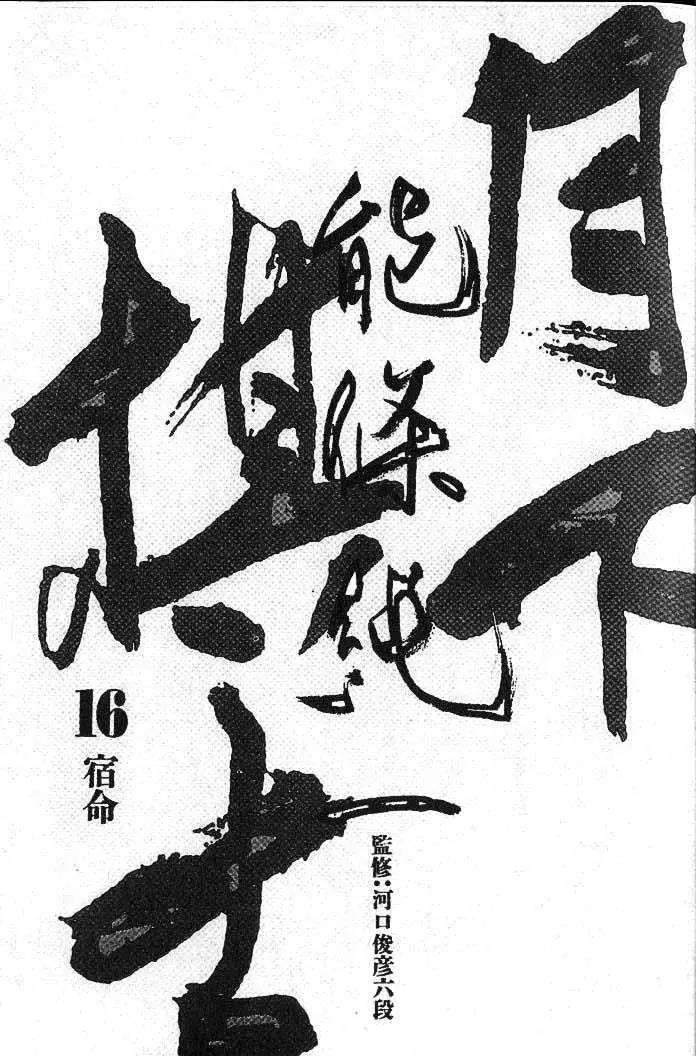 月下
棋士
能條純一
16
宿命
監修:河口俊彦六段